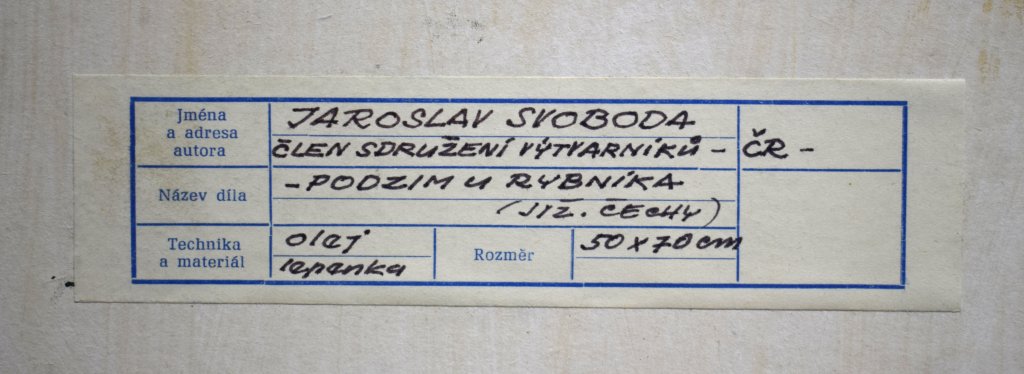 Jména
a adresa
autora
JAROSLAV SVOBODA
ČLEN SDRUŽENÍ VÝTVARNÍKŮ - ČR -
Název díla
- PODZIM U RYBNÍKA
(JIŽ. ČECHY)
Technika
a materiál
olej
lepenka
Rozměr
50 x 70 cm